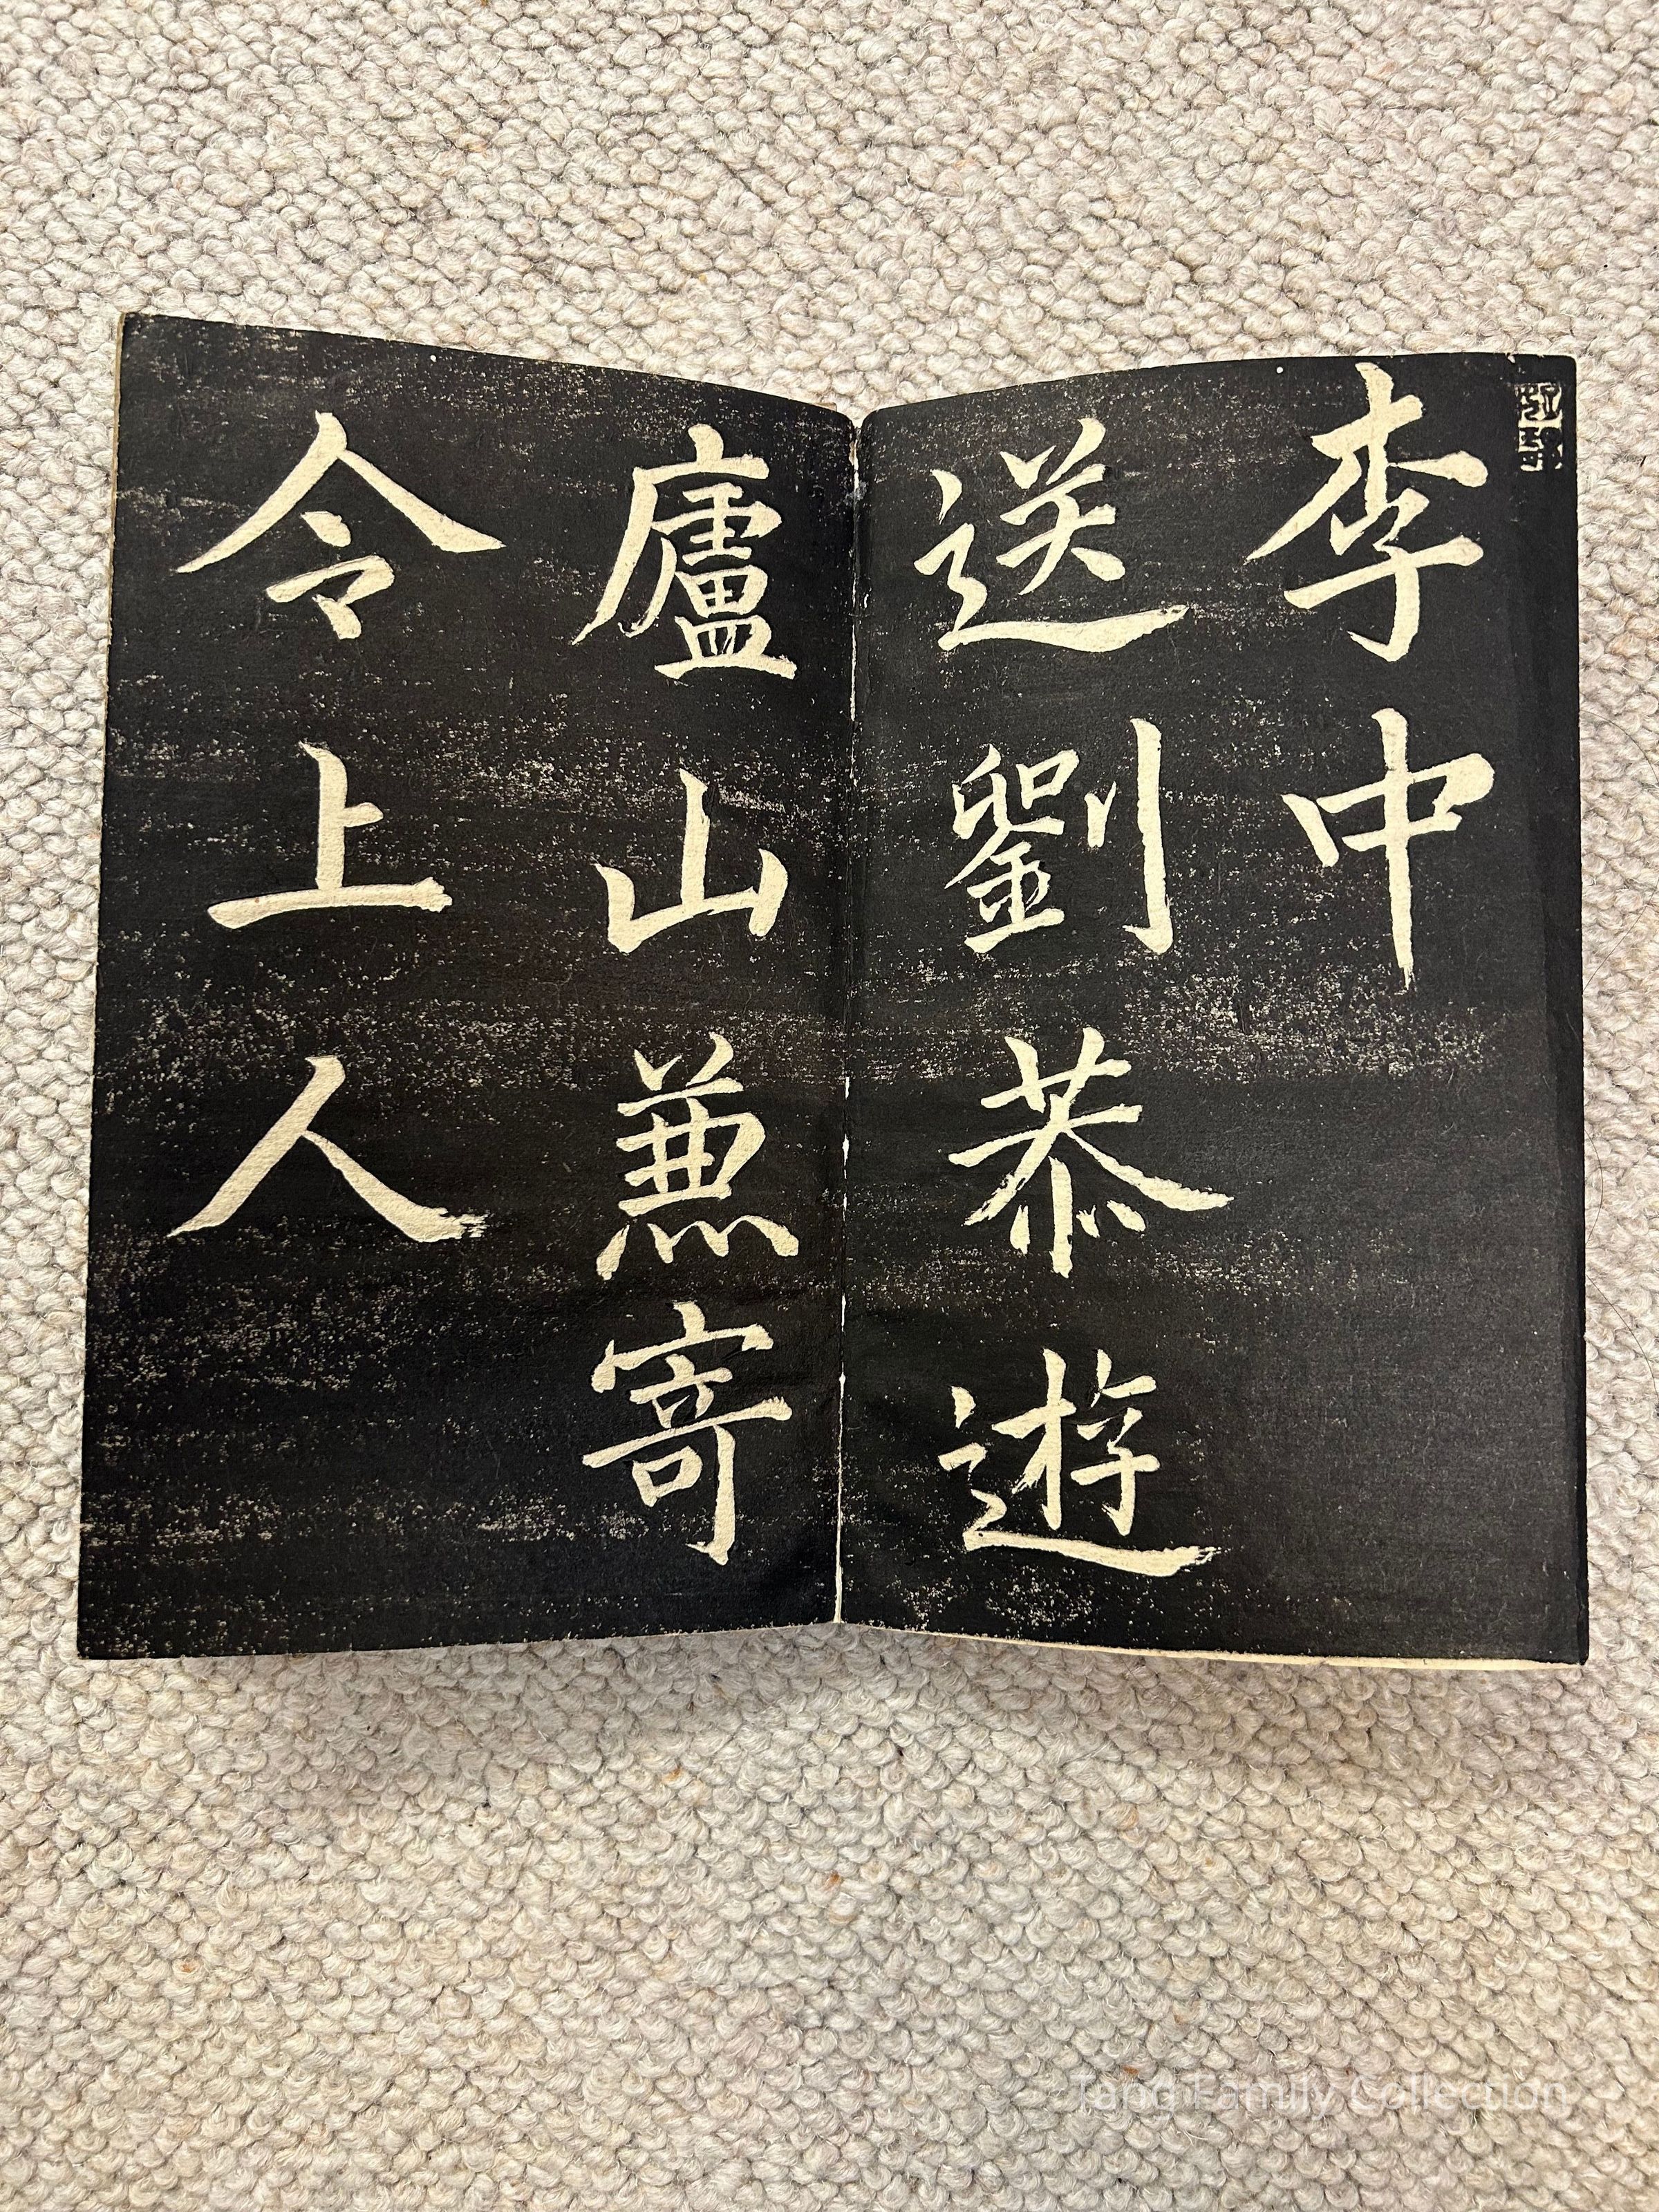 李中
送劉恭遊
廬山兼寄
令上人
Tang Family Collection